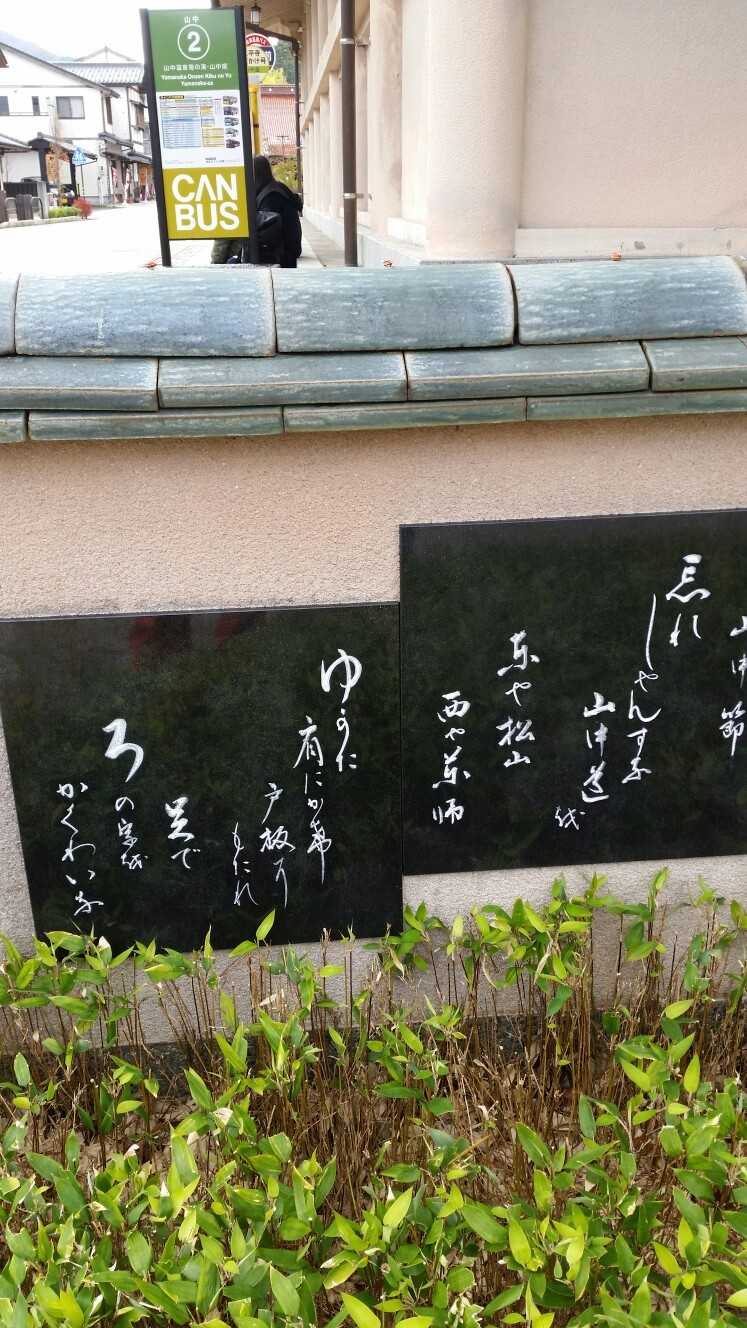 山中
2
山中温泉菊の湯・山中座
Yamanaka Onsen Kiku no Yu
Yamanaka-za
CAN
BUS
山中節
忘れ
しやんすな
山中道を
東や松山
西や薬師
ゆかた
肩にかけ
戸板に
もたれ
足で
ろの字を
かくわいな